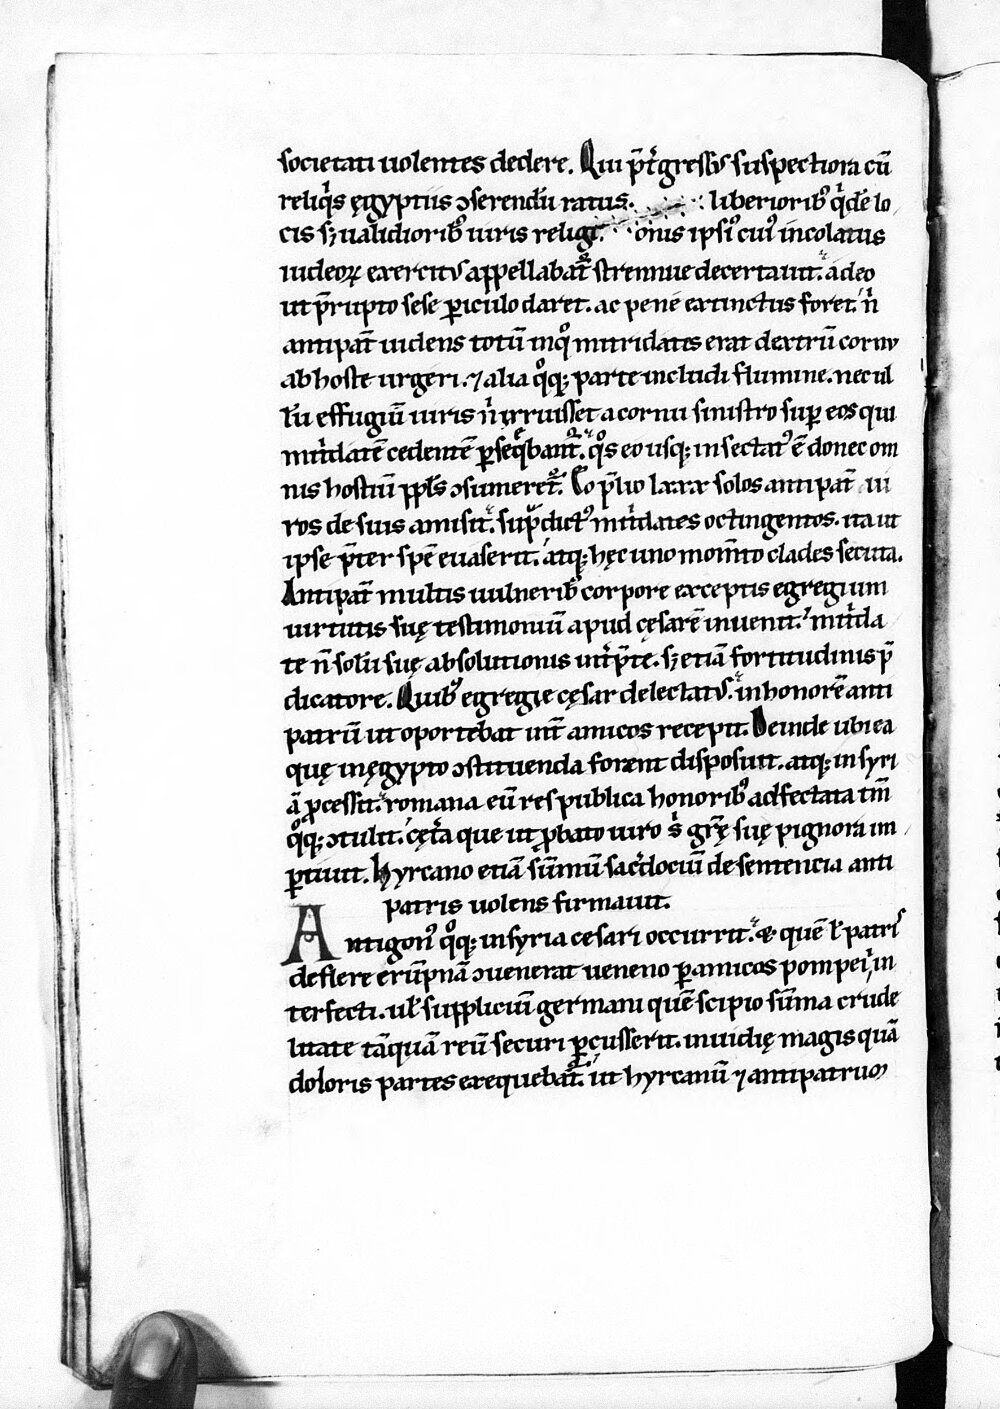 societati uolentes dedere. Qui p̄tͥgressꝰ suspectiora cū
reliqͥs ęgyptiis ↄserendū ratus. liberioribꝰ qͥdē lo
cis sꝫ ualidioribꝰ uiris religi onis ipsiꝰ cuiꝰ incolatus
iudeoꝝ exercitꝰ appellabat᷑ strennue decertauit. adeo
ut p̄rupto sese ꝑiculo daret. ac pene extinctus foret. nͥ
antipat̄ uidens totū inqͦ mitridates erat dextrū cornu
ab hoste urgeri. ⁊ alia qͦqꝫ parte includi flumine. nec ul
lū effugiū uiris nͥ irruisset a cornu sinistro suꝑ eos qui
mitͥdatē cedentē ꝑseqͣbant᷑. qͦs eo usqꝫ insectatꝰ ē donec om
nis hostiū ppl̄s ↄsumeret᷑. Eo p̄lio lxxx solos antipat̄ ui
ros de suis amisit. sup̄dictꝰ mitͥdates octingentos. ita ut
ipse p̄ter spē euaserit. atqꝫ hęc uno mom̄to clades secuta.
Antipat̄ multis uulneribꝰ corpore exceptis egregium
uirtutis suę testimoniū apud cęsarē inuenit. mitͥda
te n̄ solū suę absolutionis int͛p̄te. sꝫ etiā fortitudinis p̄
dicatore. Quibꝰ egregie cęsar delectatꝰ. in honorē anti
patrū ut oportebat int̄ amicos recepit. Deinde ubi ea
quę in ęgypto ↄstituenda forent disposuit. atqꝫ in syri
ā ꝓcessit. romana eū res publica honoribꝰ adfectata tm̄
qͦqꝫ ↄtulit. cęt̄a que ut ꝓbato uiro sͥ grę̄ suę pignora im
ꝑtiuit. Hyrcano etiā sūmū sac͛dociū de sentencia anti
patris uolens firmauit.
Antigonꝰ qͦqꝫ in syria cesari occurrit. & quē l̄ patriͥs
deflere erūpnā ↄuenerat ueneno ꝑ amicos pompei, in
terfecti. ul̄ suppliciū germani quē scipio sūma crude
litate tāquā reū securi ꝑcusserit. inuidię magis quā
doloris partes exequebat᷑. ut hyrcanū ⁊ antipatruꝫ